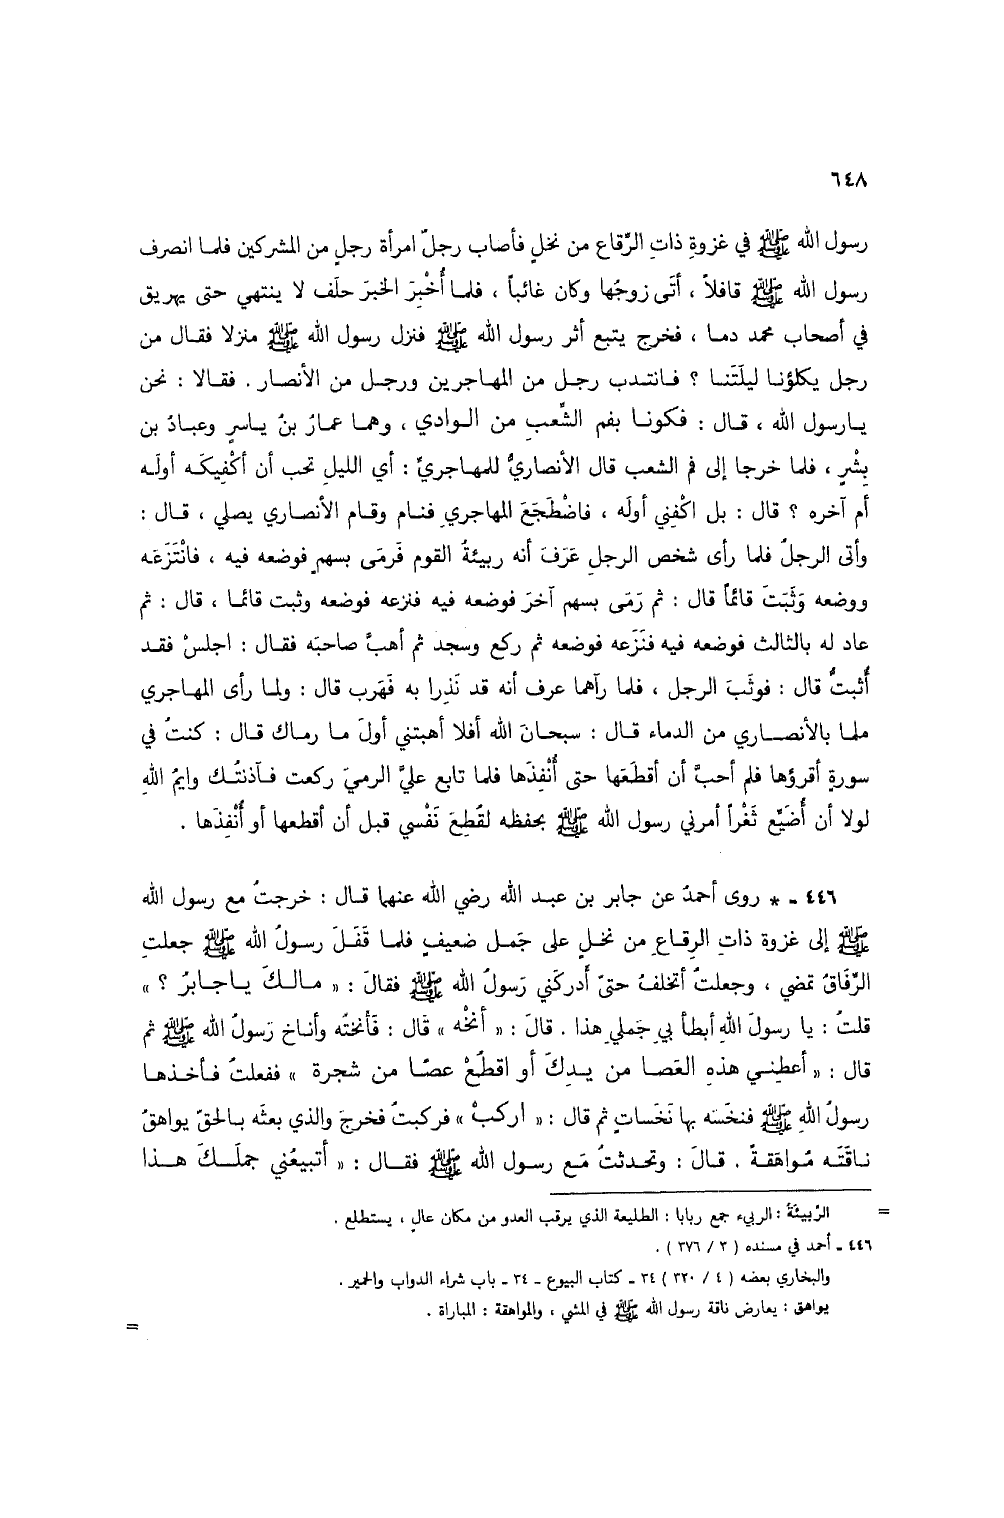 ٦٤٨
رسول الله ﷺ في غزوةِ ذاتِ الرِّقاع من نخلٍ فأصاب رجلٌ امرأة رجلٍ من المشركين فلما انصرف
رسول الله ﷺ قافلاً ، أتَى زوجُها وكان غائباً ، فلما أُخْبِرَ الخبرَ حلَف لا ينتهي حتى يهريق
في أصحاب محمد دما ، فخرج يتبع أثر رسول الله ﷺ فنزل رسول الله ﷺ منزلا فقال من
رجل يكلؤنا ليلَتَنا ؟ فانتدب رجل من المهاجرين ورجل من الأنصار . فقالا : نحن
يارسول الله ، قال : فكونا بفم الشِّعب من الوادي ، وهما عمارُ بنُ ياسرٍ وعبادُ بن
بِشْرٍ ، فلما خرجا إلى فم الشعب قال الأنصاريُّ للمهاجريِّ : أي الليلِ تحب أن أكْفِيكَه أولَه
أم آخره ؟ قال : بل اكْفِني أولَه ، فاضْطَجَعَ المهاجري فنام وقام الأنصاري يصلي ، قال :
وأتى الرجلُ فلما رأى شخص الرجلِ عَرَفَ أنه ربيئةُ القوم فَرمَى بسهمٍ فوضعه فيه ، فانْتَزَعَه
ووضعه وَثَبَتَ قائماً قال : ثم رَمَى بسهم آخرَ فوضعه فيه فنزعه فوضعه وثبت قائما ، قال : ثم
عاد له بالثالث فوضعه فيه فنَزَعه فوضعه ثم ركع وسجد ثم أهبَّ صاحبَه فقال : اجلسْ فقد
أُثبتُّ قال : فوثَبَ الرجل ، فلما رآهما عرف أنه قد نَذِرا به فَهَرب قال : ولما رأى المهاجري
ما بالأنصاري من الدماء قال : سبحانَ الله أفلا أهبتني أولَ ما رماك قال : كنتُ في
سورةٍ أقرؤها فلم أحبَّ أن أقطَعَها حتى أُنْفِذَها فلما تابع عليَّ الرميَ ركعت فآذنتُك وايمُ اللهِ
لولا أن أُضَيِّع ثَغْراً أمرني رسول الله ﷺ بحفظه لقُطِعَ نَفْسي قبل أن أقطعها أو أُنْفِذَها .
٤٤٦ - * روى أحمدُ عن جابر بن عبد الله رضي الله عنهما قال : خرجتُ مع رسول الله
ﷺ إلى غزوة ذاتِ الرِقاعِ من نخلٍ على جَملٍ ضعيفٍ فلما قَفَلَ رسولُ الله ﷺ جعلتِ
الرِّفَاقُ تمضي ، وجعلتُ أتخلفُ حتىّ أدركَني رَسولُ الله ﷺ فقالَ : « مالكَ ياجابرُ ؟ »
قلتُ : يا رسولَ اللهِ أبطأ بي جَملي هذا . قالَ : « أنخْه » قَال : فَأنختُه وأناخَ رَسولُ الله ﷺ ثم
قال : « أعطِني هذهِ العَصا من يدِكَ أو اقطَعْ عصًا من شجرة » ففعلتُ فأخذها
رسولُ اللهِ ﷺ فنخَسَه بها نَخَساتٍ ثم قال : « اركبْ » فركبتُ فخرجَ والذي بعثَه بالحقّ يواهقُ
ناقَتَه مُواهَقةً . قالَ : وتحدثتُ مَع رسول الله ﷺ فقال : « أتبيعُني جملَكَ هذا
= الرّبيئَةُ : الربيء جمع ربايا : الطليعة الذي يرقب العدو من مكان عالٍ ، يستطلع .
٤٤٦ - أحمد في مسنده ( ٣ / ٣٧٦ ) .
والبخاري بعضه ( ٤ / ٣٢٠ ) ٣٤ - كتاب البيوع - ٣٤ - باب شراء الدواب والحمير .
يواهق : يعارض ناقة رسول الله ﷺ في المشي ، والمواهقة : المباراة .
=